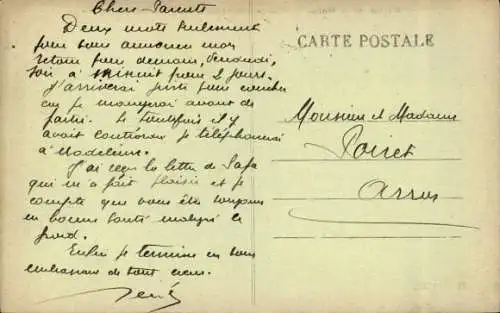 Chers Parents
Deux mots seulement
pour vous annoncer mon
retour pour demain, Vendredi,
soir à minuit pour 2 jours.
J'arriverai juste pour coucher
car je mangerai avant de
partir. Si toutefois il y
avait contrordre je téléphonerai
à Madeleine.
J'ai reçu la lettre de Papa
qui m'a fait plaisir et je
compte que vous êtes toujours
en bonne santé malgré le
froid.
Enfin je termine en vous
embrassant de tout cœur.
René
CARTE POSTALE
Monsieur et Madame
Poiret
Arras